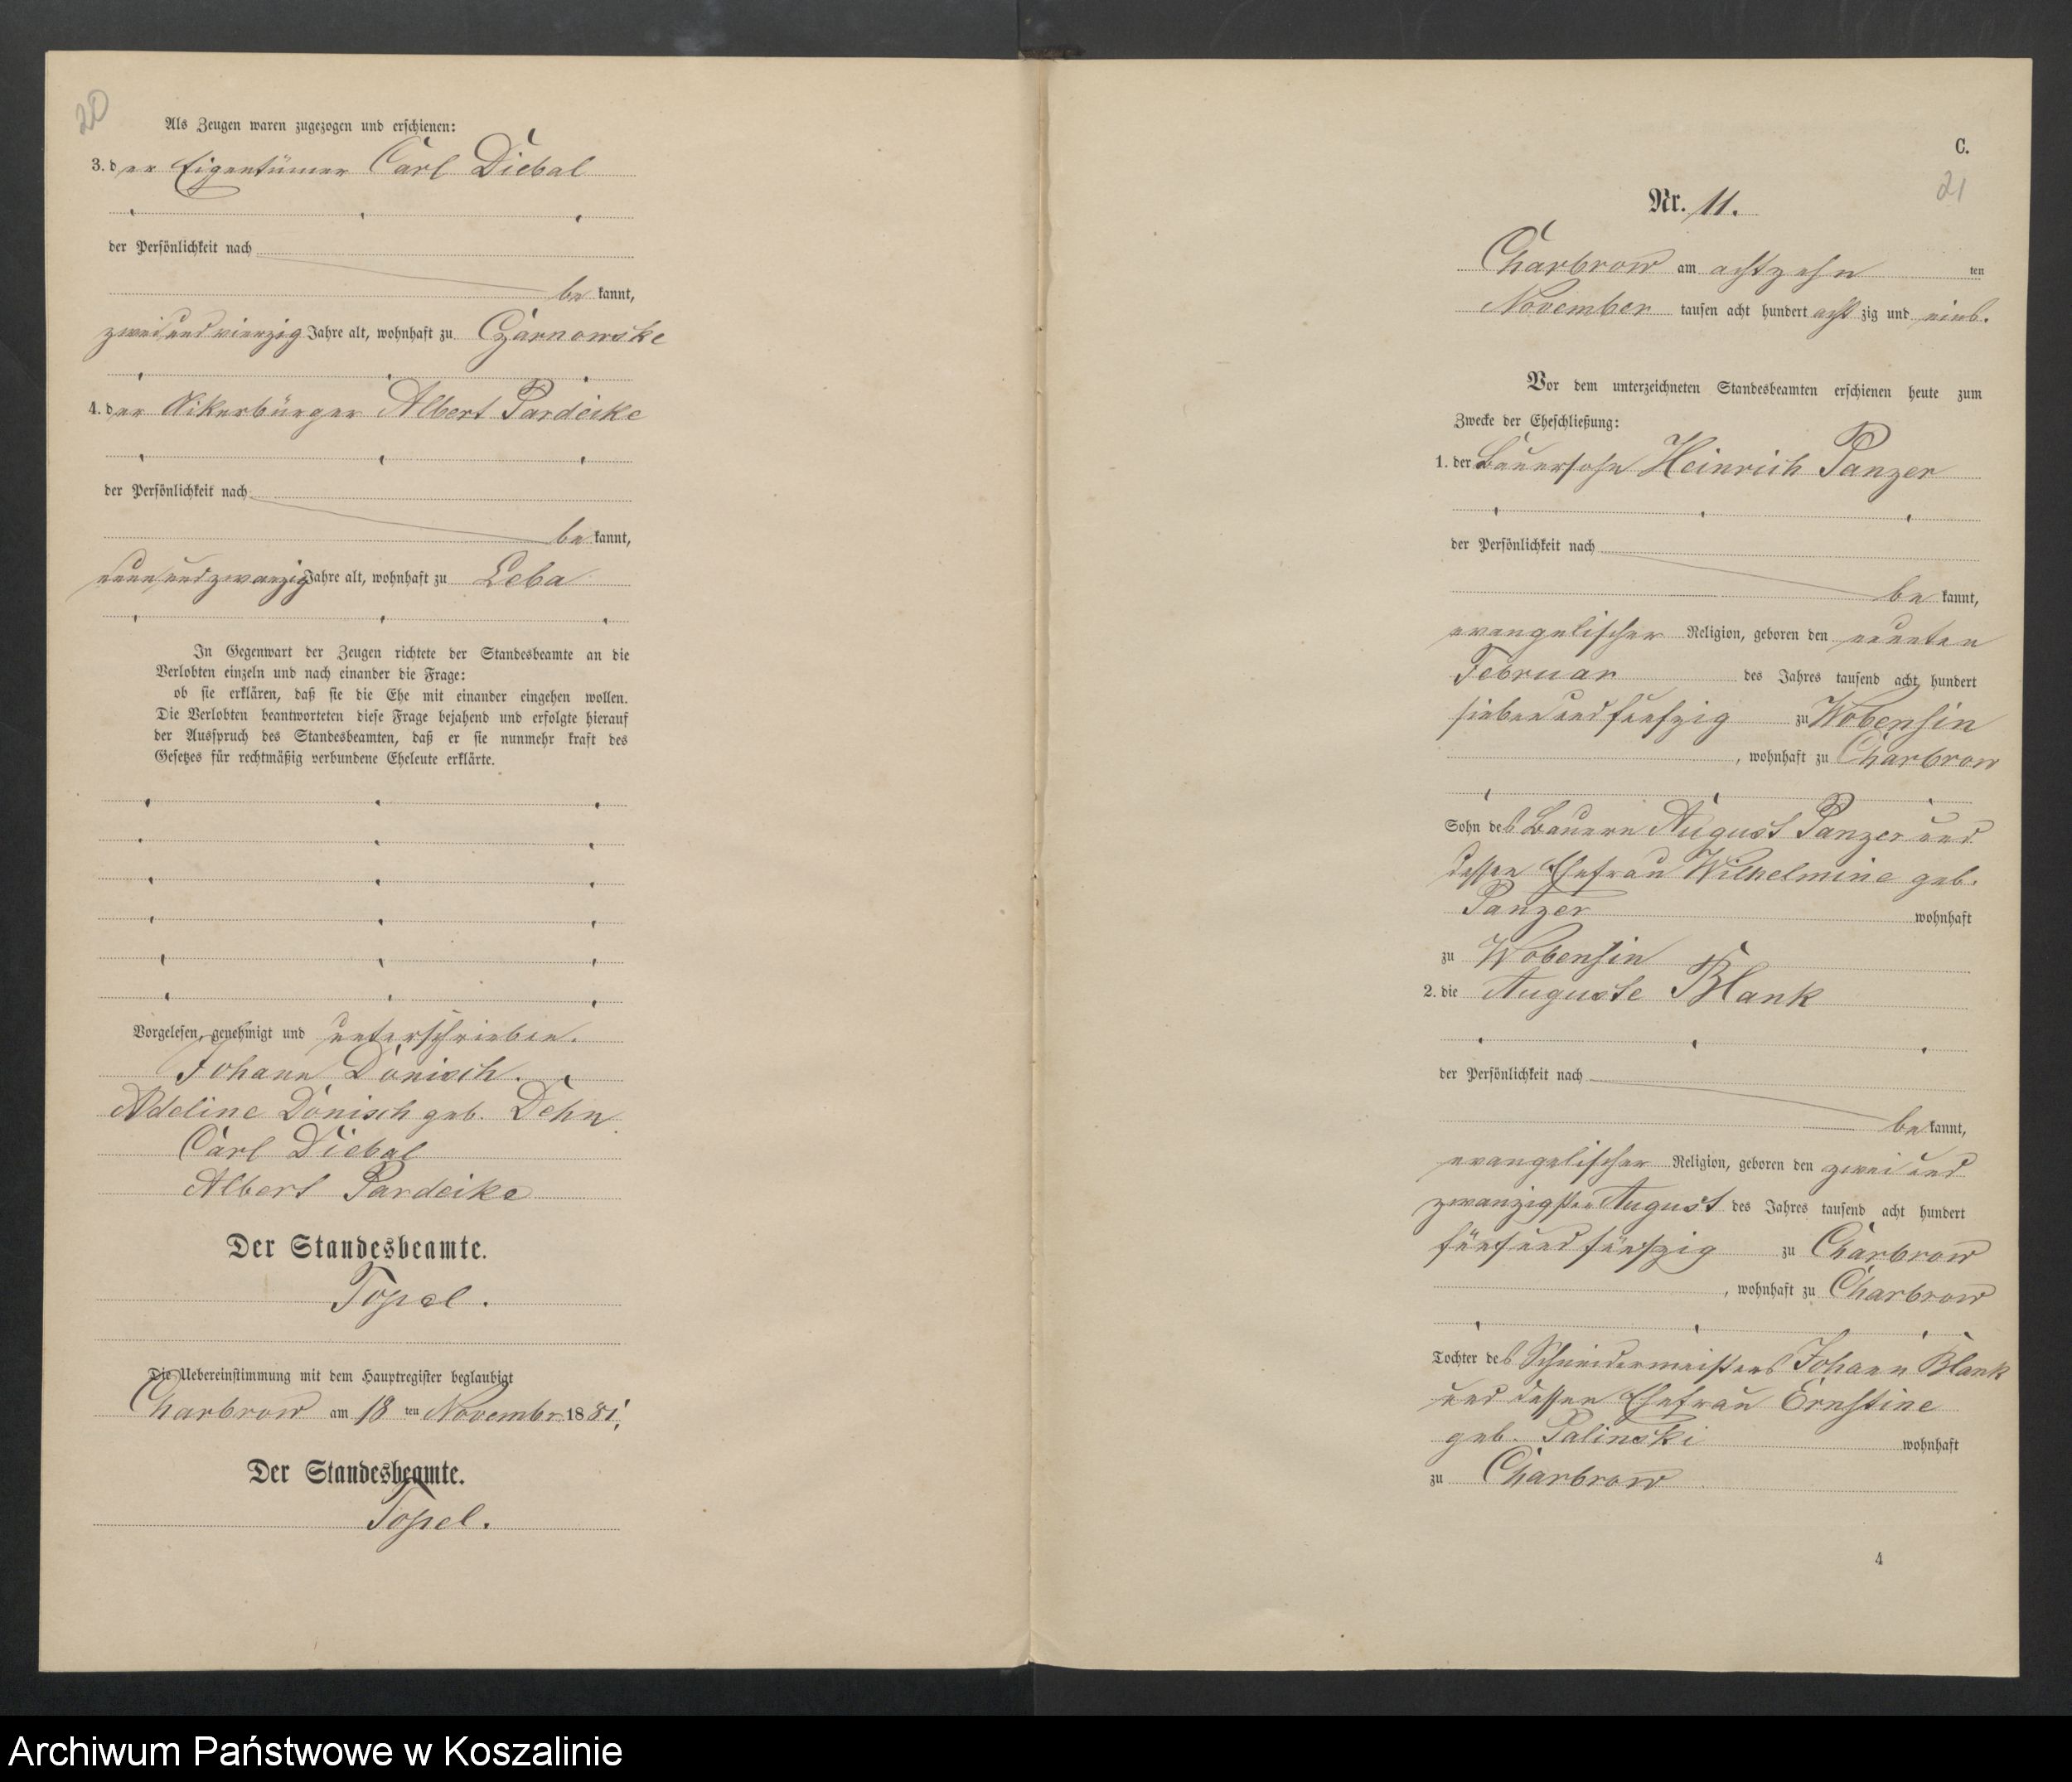 20
Als Zeugen waren zugezogen und erschienen:
3. der Eigentümer Carl Diebal
der Persönlichkeit nach
bekannt,
zweiundvierzig Jahre alt, wohnhaft zu Czarnowske
4. der Ackerbürger Albert Pardeike
der Persönlichkeit nach
bekannt,
neunundzwanzig Jahre alt, wohnhaft zu Leba
In Gegenwart der Zeugen richtete der Standesbeamte an die
Verlobten einzeln und nach einander die Frage:
ob sie erklären, daß sie die Ehe mit einander eingehen wollen.
Die Verlobten beantworteten diese Frage bejahend und erfolgte hierauf
der Ausspruch des Standesbeamten, daß er sie nunmehr kraft des
Gesetzes für rechtmäßig verbundene Eheleute erklärte.
Vorgelesen, genehmigt und unterschrieben.
Johann Dönisch.
Adeline Dönisch geb. Dehn
Carl Diebal
Albert Pardeike
Der Standesbeamte.
Topel.
Die Uebereinstimmung mit dem Hauptregister beglaubigt
Charbrow am 18 ten November 1881,
Der Standesbeamte.
Topel.
C.
21
Nr. 11.
Charbrow am achtzehn ten
November tausen acht hundert achtzig und eins.
Vor dem unterzeichneten Standesbeamten erschienen heute zum
Zwecke der Eheschließung:
1. der Bauersohn Heinrich Panzer
der Persönlichkeit nach
bekannt,
evangelischer Religion, geboren den neunten
Februar des Jahres tausend acht hundert
siebenundfünfzig zu Wobensin
, wohnhaft zu Charbrow
Sohn des Bauern August Panzer und
dessen Ehefrau Wilhelmine geb.
Panzer wohnhaft
zu Wobensin
2. die Auguste Blank
der Persönlichkeit nach
bekannt,
evangelischer Religion, geboren den zweiund
zwanzigsten August des Jahres tausend acht hundert
fünfundfünfzig zu Charbrow
, wohnhaft zu Charbrow
Tochter des Schneidermeisters Johann Blank
und dessen Ehefrau Ernstine
geb. Palinski wohnhaft
zu Charbrow
4
Archiwum Państwowe w Koszalinie